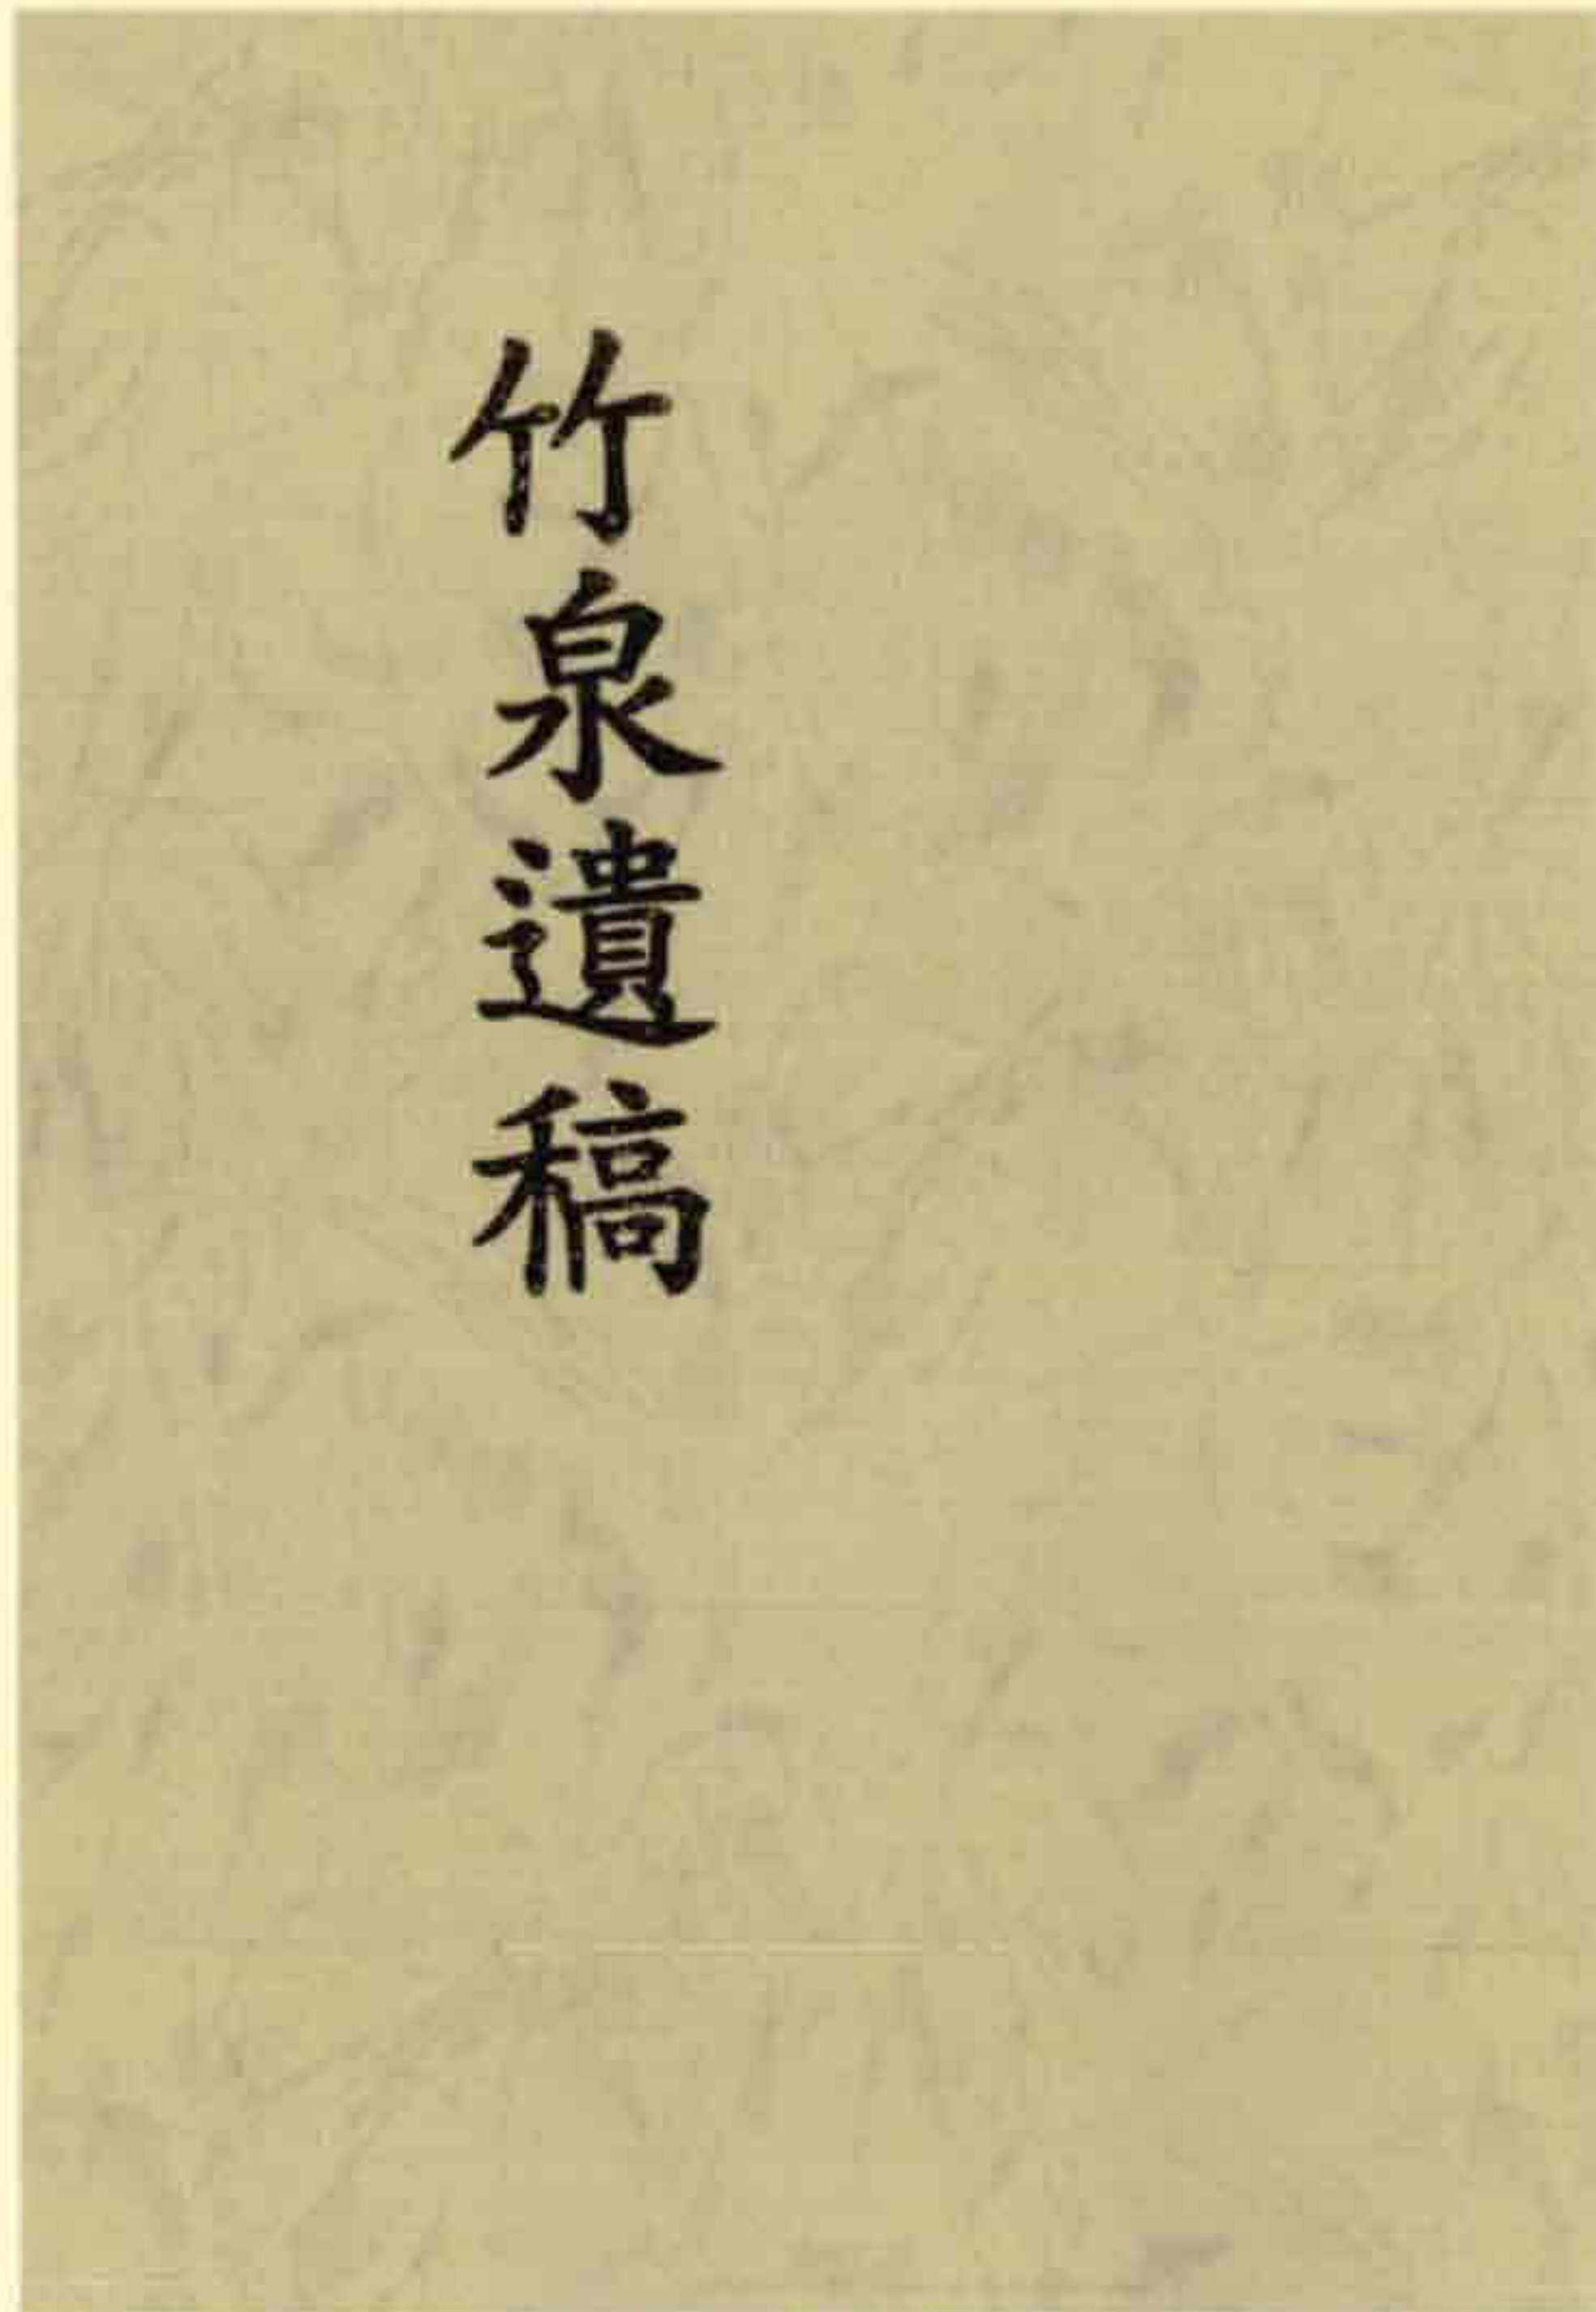 竹泉遺稿